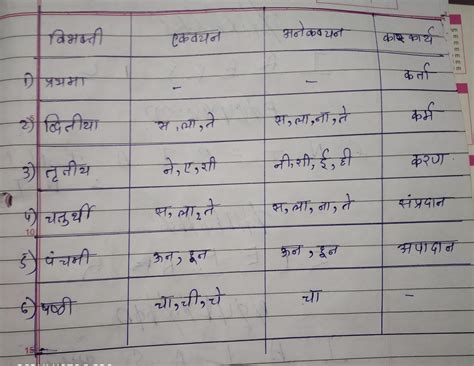 विभक्ती एकवचन अनेकवचन कार्य
१) प्रथमा - - कर्ता
२) द्वितीया स, ला, ते स, ला, ना, ते कर्म
३) तृतीय ने, ए, शी नी, शी, ई, ही करण
४) चतुर्थी स, ला, ते स, ला, ना, ते संप्रदान
५) पंचमी ऊन, हून ऊन, हून अपादान
६) षष्ठी चा, ची, चे चा -